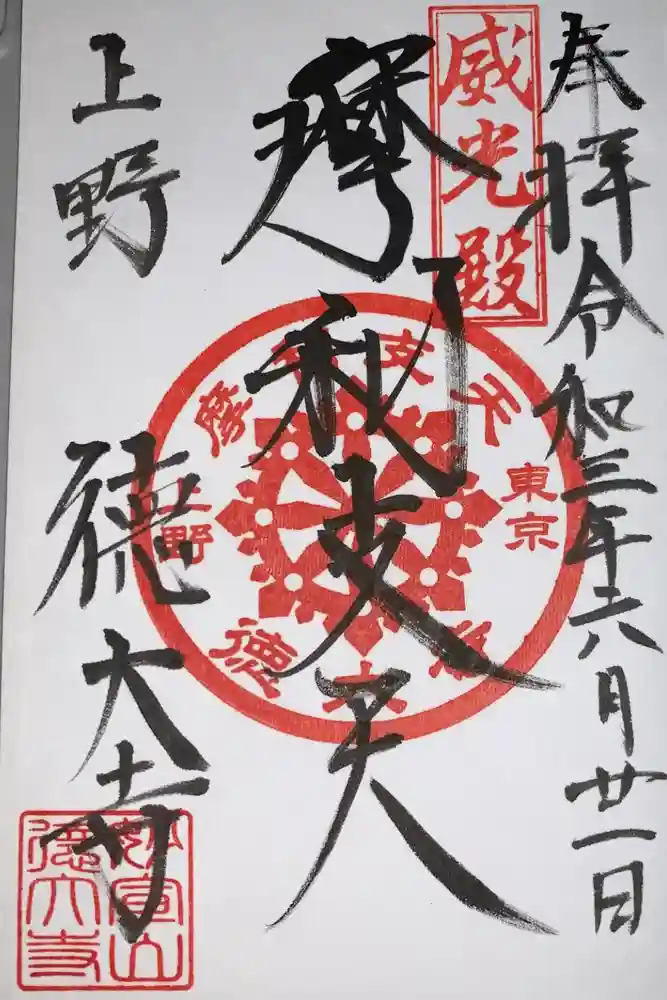 奉拝令和三年六月廿一日
威光殿
摩利支天
上野
徳大寺
摩利支天
東京
上野
徳大寺
妙宣山
徳大寺